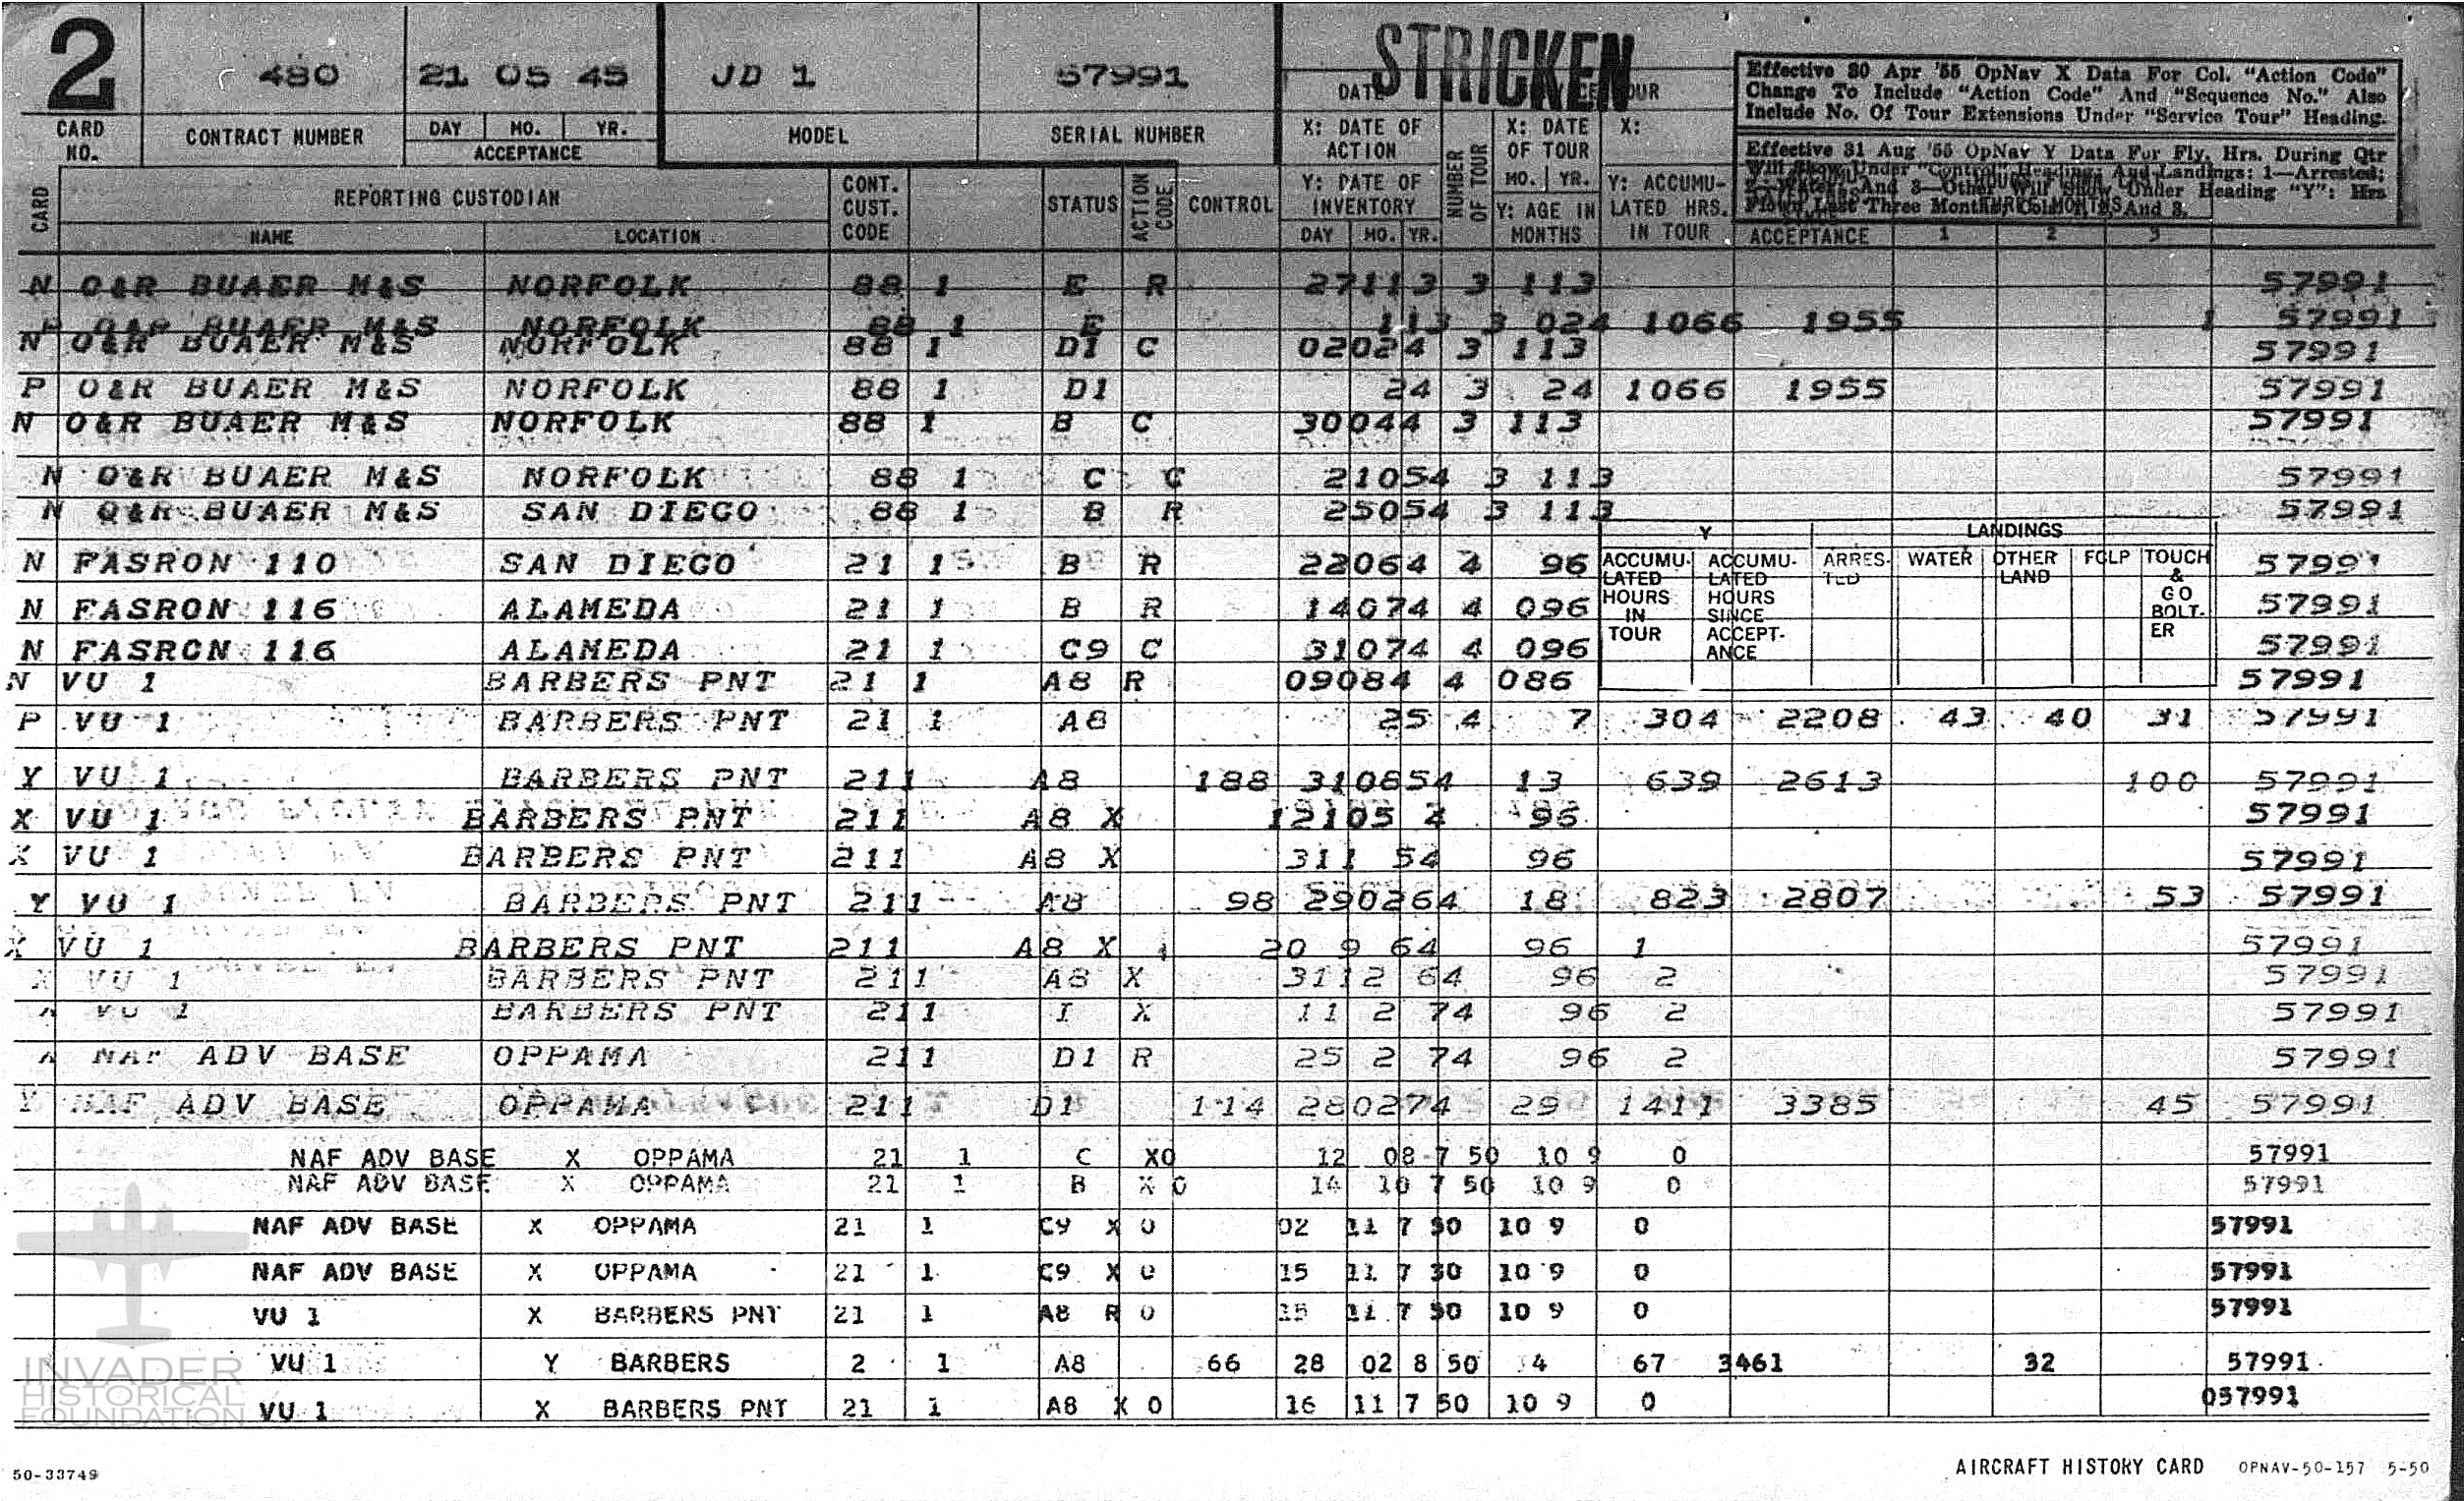 2 480 21 05 45 JD 1 57991 STRICKEN
CARD NO. CONTRACT NUMBER DAY MO. YR. ACCEPTANCE MODEL SERIAL NUMBER
X: DATE OF ACTION X: DATE OF TOUR X:
Effective 30 Apr '55 OpNav X Data For Col. "Action Code"
Change To Include "Action Code" And "Sequence No." Also
Include No. Of Tour Extensions Under "Service Tour" Heading.
Effective 31 Aug '55 OpNav Y Data For Fly. Hrs. During Qtr
Will Show Under "Control" Heading; And Landings: 1—Arrested;
2—Water; And 3—Other Will Show Under Heading "Y": Hrs
Flown Last Three Months, Cols. And 3.
CARD REPORTING CUSTODIAN CONT. CUST. CODE STATUS ACTION CODE CONTROL Y: DATE OF INVENTORY NUMBER OF TOUR MO. YR. Y: AGE IN MONTHS Y: ACCUMULATED HRS. IN TOUR
NAME LOCATION DAY MO. YR. ACCEPTANCE 1 2 3
N O&R BUAER M&S NORFOLK 88 1 E R 27113 3 113 57991
P O&R BUAER M&S NORFOLK 88 1 E 113 3 024 1066 1955 1 57991
N O&R BUAER M&S NORFOLK 88 1 D1 C 02024 3 113 57991
P O&R BUAER M&S NORFOLK 88 1 D1 24 3 24 1066 1955 57991
N O&R BUAER M&S NORFOLK 88 1 B C 30044 3 113 57991
N O&R BUAER M&S NORFOLK 88 1 C C 21054 3 113 57991
N O&R BUAER M&S SAN DIEGO 88 1 B R 25054 3 113 57991
Y LANDINGS
ACCUMU-LATED HOURS IN TOUR ACCUMU-LATED HOURS SINCE ACCEPT-ANCE ARRES-TED WATER OTHER LAND FCLP TOUCH & GO BOLT-ER
N FASRON 110 SAN DIEGO 21 1 B R 22064 4 96 57991
N FASRON 116 ALAMEDA 21 1 B R 14074 4 096 57991
N FASRON 116 ALAMEDA 21 1 C9 C 31074 4 096 57991
N VU 1 BARBERS PNT 21 1 A8 R 09084 4 086 57991
P VU 1 BARBERS PNT 21 1 A8 25 4 7 304 2208 43 40 31 57991
Y VU 1 BARBERS PNT 211 A8 188 310854 13 639 2613 100 57991
X VU 1 BARBERS PNT 211 A8 X 12105 4 96 57991
X VU 1 BARBERS PNT 211 A8 X 311 54 96 57991
Y VU 1 BARBERS PNT 211 A8 98 290264 18 823 2807 53 57991
X VU 1 BARBERS PNT 211 A8 X 20 9 64 96 1 57991
X VU 1 BARBERS PNT 211 A8 X 3112 64 96 2 57991
VU 1 BARBERS PNT 211 I X 11 2 74 96 2 57991
NAF ADV BASE OPPAMA 211 D1 R 25 2 74 96 2 57991
Y NAF ADV BASE OPPAMA 211 D1 114 280274 29 1411 3385 45 57991
NAF ADV BASE X OPPAMA 21 1 C X0 12 08 7 50 10 9 0 57991
NAF ADV BASE X OPPAMA 21 1 B X 0 14 10 7 50 10 9 0 57991
NAF ADV BASE X OPPAMA 21 1 C9 X 0 02 11 7 50 10 9 0 57991
NAF ADV BASE X OPPAMA 21 1 C9 X 0 15 11 7 50 10 9 0 57991
VU 1 X BARBERS PNT 21 1 A8 R 0 15 11 7 50 10 9 0 57991
VU 1 Y BARBERS 2 1 A8 66 28 02 8 50 4 67 3461 32 57991
VU 1 X BARBERS PNT 21 1 A8 X 0 16 11 7 50 10 9 0 057991
INVADER
HISTORICAL
FOUNDATION
50-33749 AIRCRAFT HISTORY CARD OPNAV-50-157 5-50